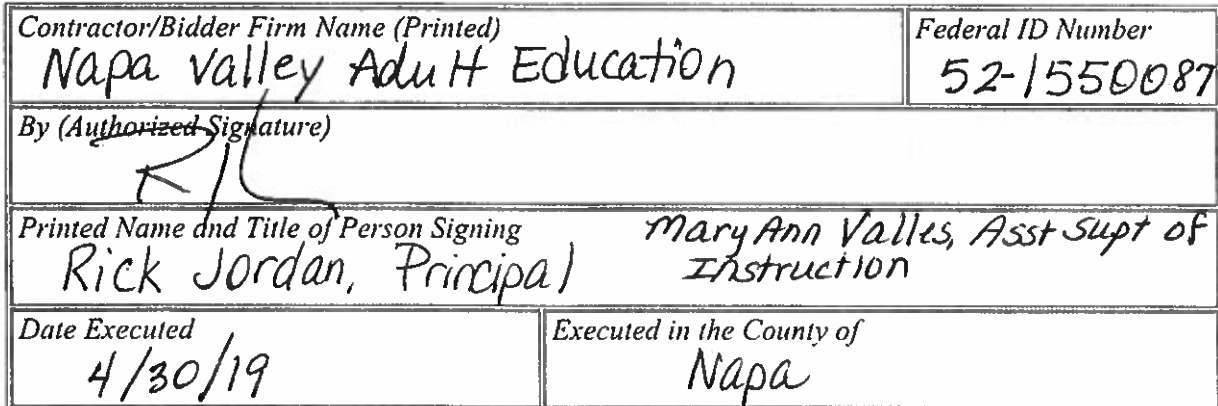 Contractor/Bidder Firm Name (Printed)
Napa Valley Adult Education
Federal ID Number
52-1550087
By (Authorized Signature)
Printed Name and Title of Person Signing
Rick Jordan, Principal
Mary Ann Valles, Asst Supt of
Instruction
Date Executed
4/30/19
Executed in the County of
Napa